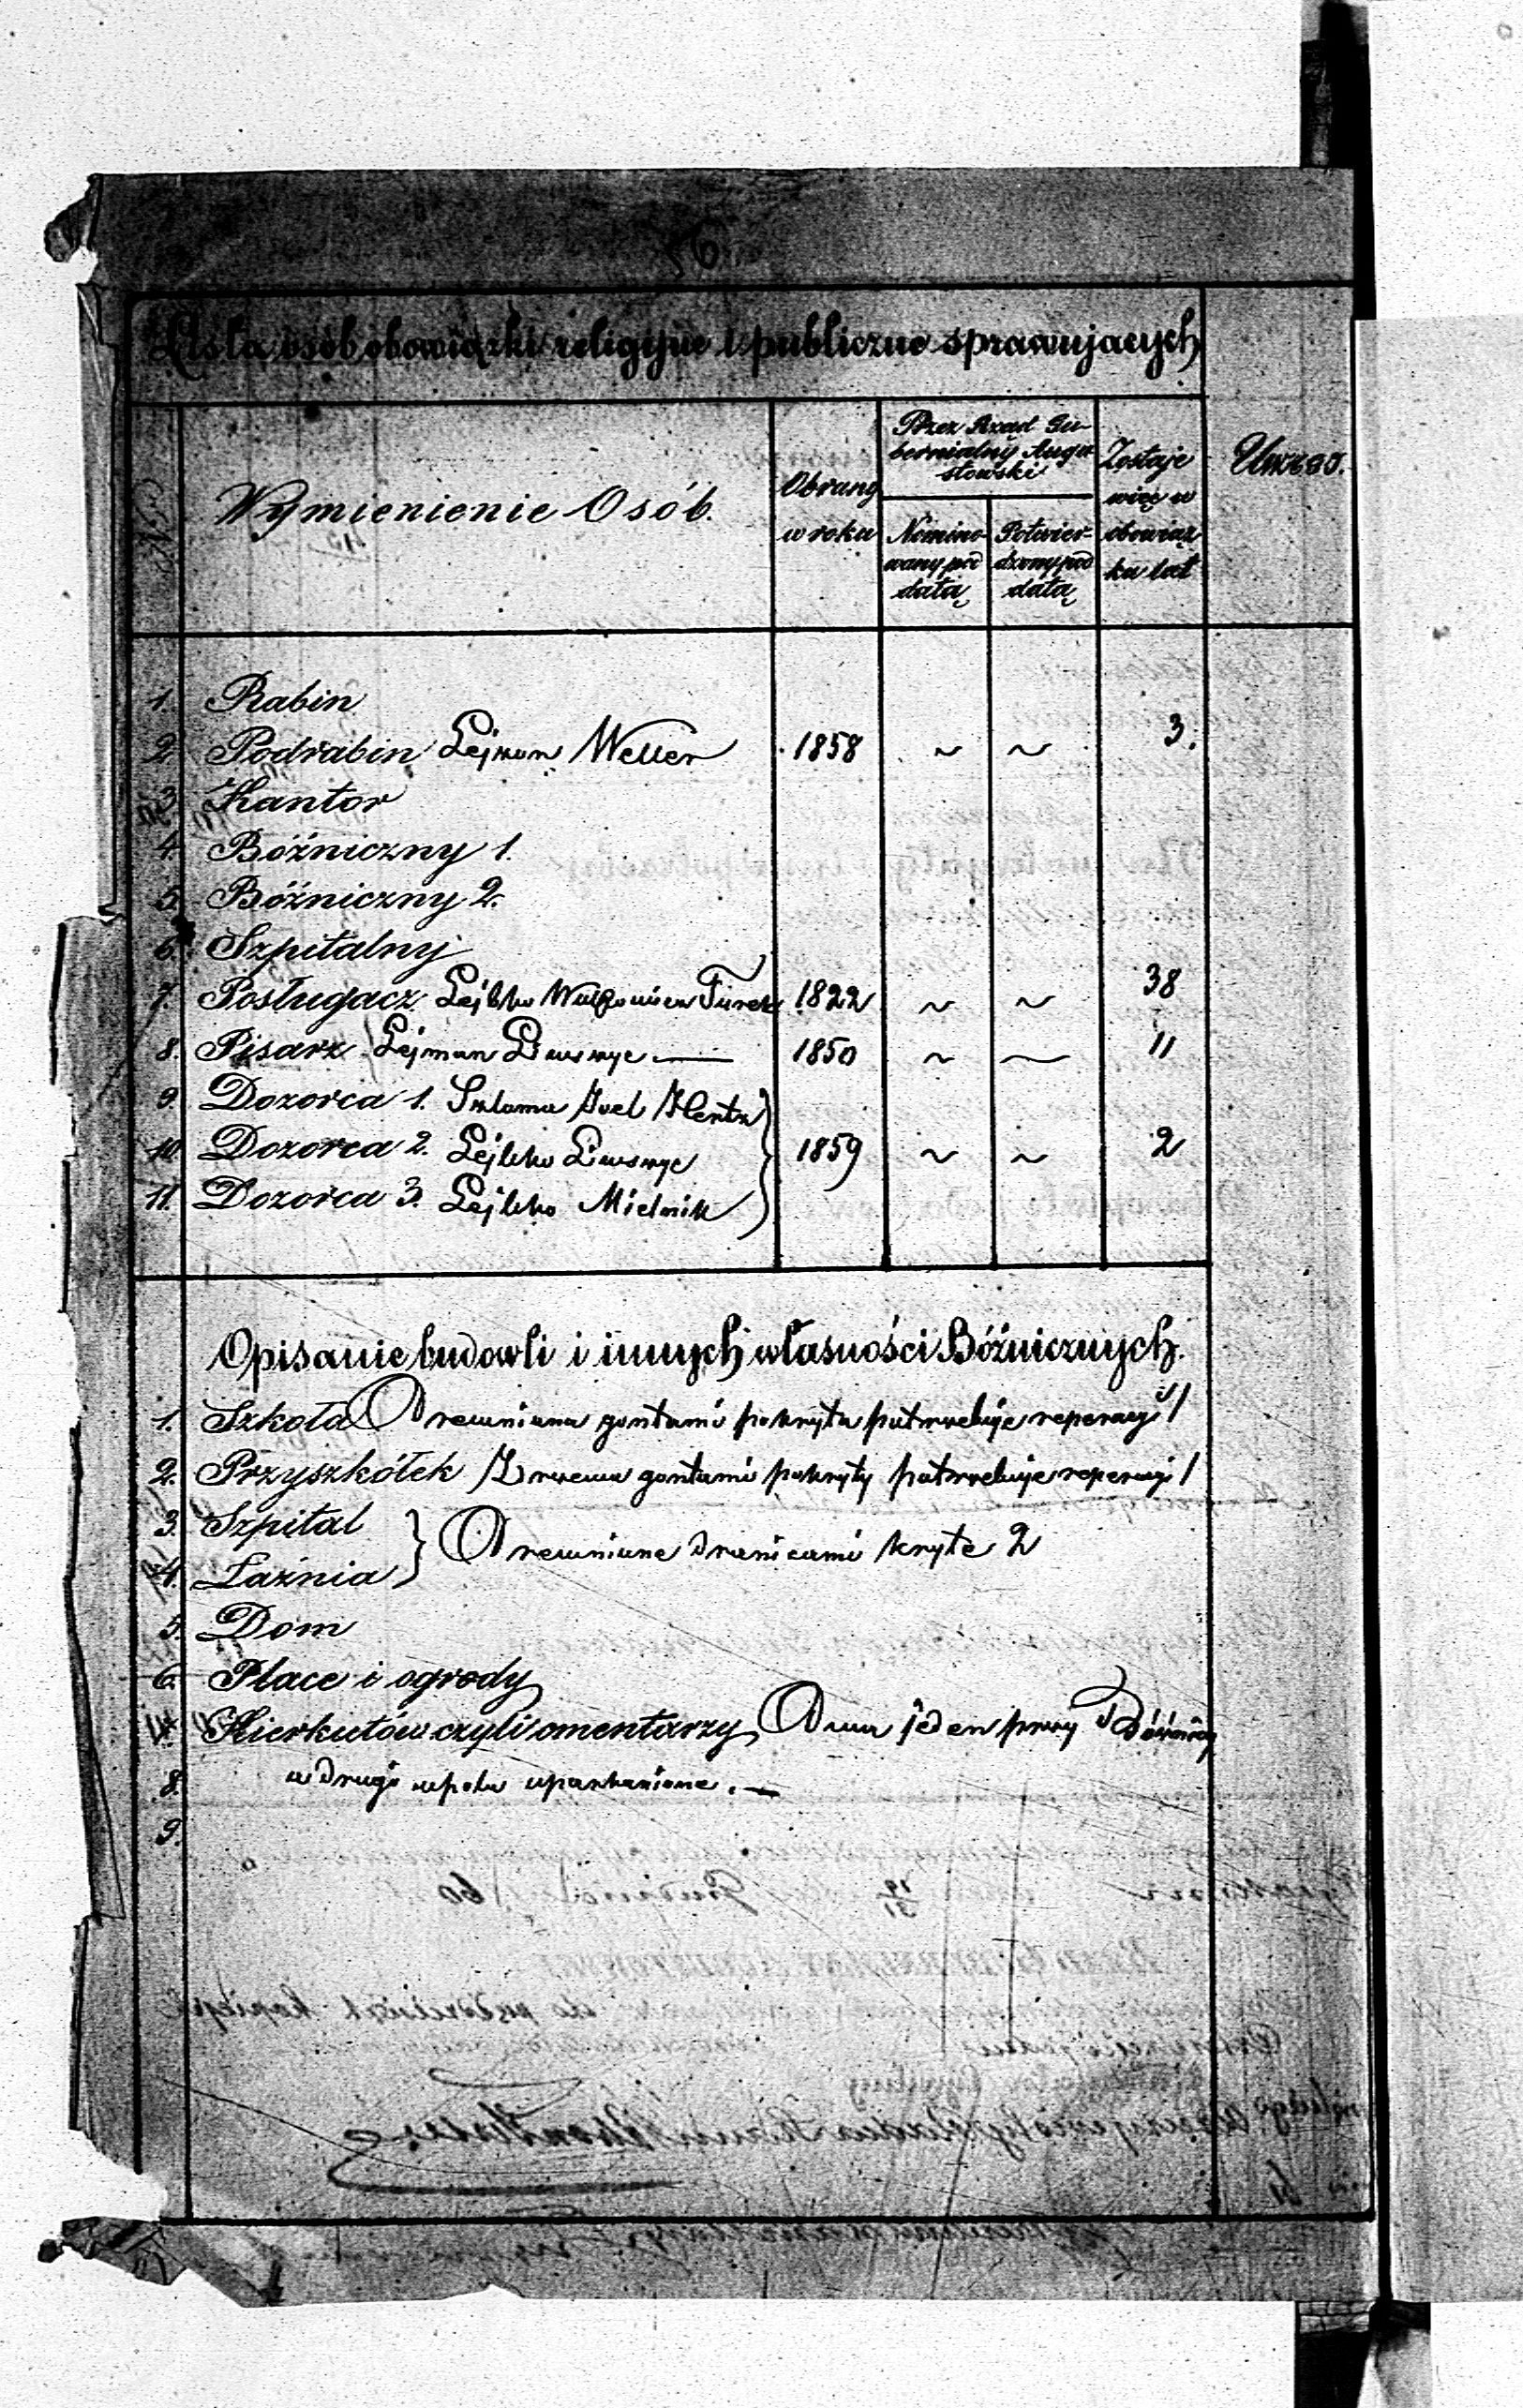 56
Lista osób obowiązki religijne i publiczne sprawujących
Wymienienie Osób.
Obrany w roku
Przez Rząd Gubernialny Augustowski
Nominowany pod datą
Potwierdzony pod datą
Zostaje więc w obowiązku lat
1. Rabin
2. Podrabin Lejman Weller 1858 ~ ~ 3.
3. Kantor
4. Bóźniczny 1.
5. Bóźniczny 2.
6. Szpitalny
7. Posługacz Lejbko Turek 1822 ~ ~ 38
8. Pisarz Lejman 1850 ~ ~ 11
9. Dozorca 1. Szloma Joel
10. Dozorca 2. Lejbko 1859 ~ ~ 2
11. Dozorca 3. Lejbko Mielnik
Opisanie budowli i innych własności Bóźnicznych.
1. Szkoła Drewniana gontami pokryta potrzebuje reperacyi
2. Przyszkółek Z drzewa gontami pokryty potrzebuje reperacyi
3. Szpital
4. Łaźnia } Drewniane dranicami kryte 2
5. Dom
6. Place i ogrody
7. Kierkutów czyli cmentarzy Dwa jeden przy Bóźnicy
8. a drugi w polu oparkanione. —
9.